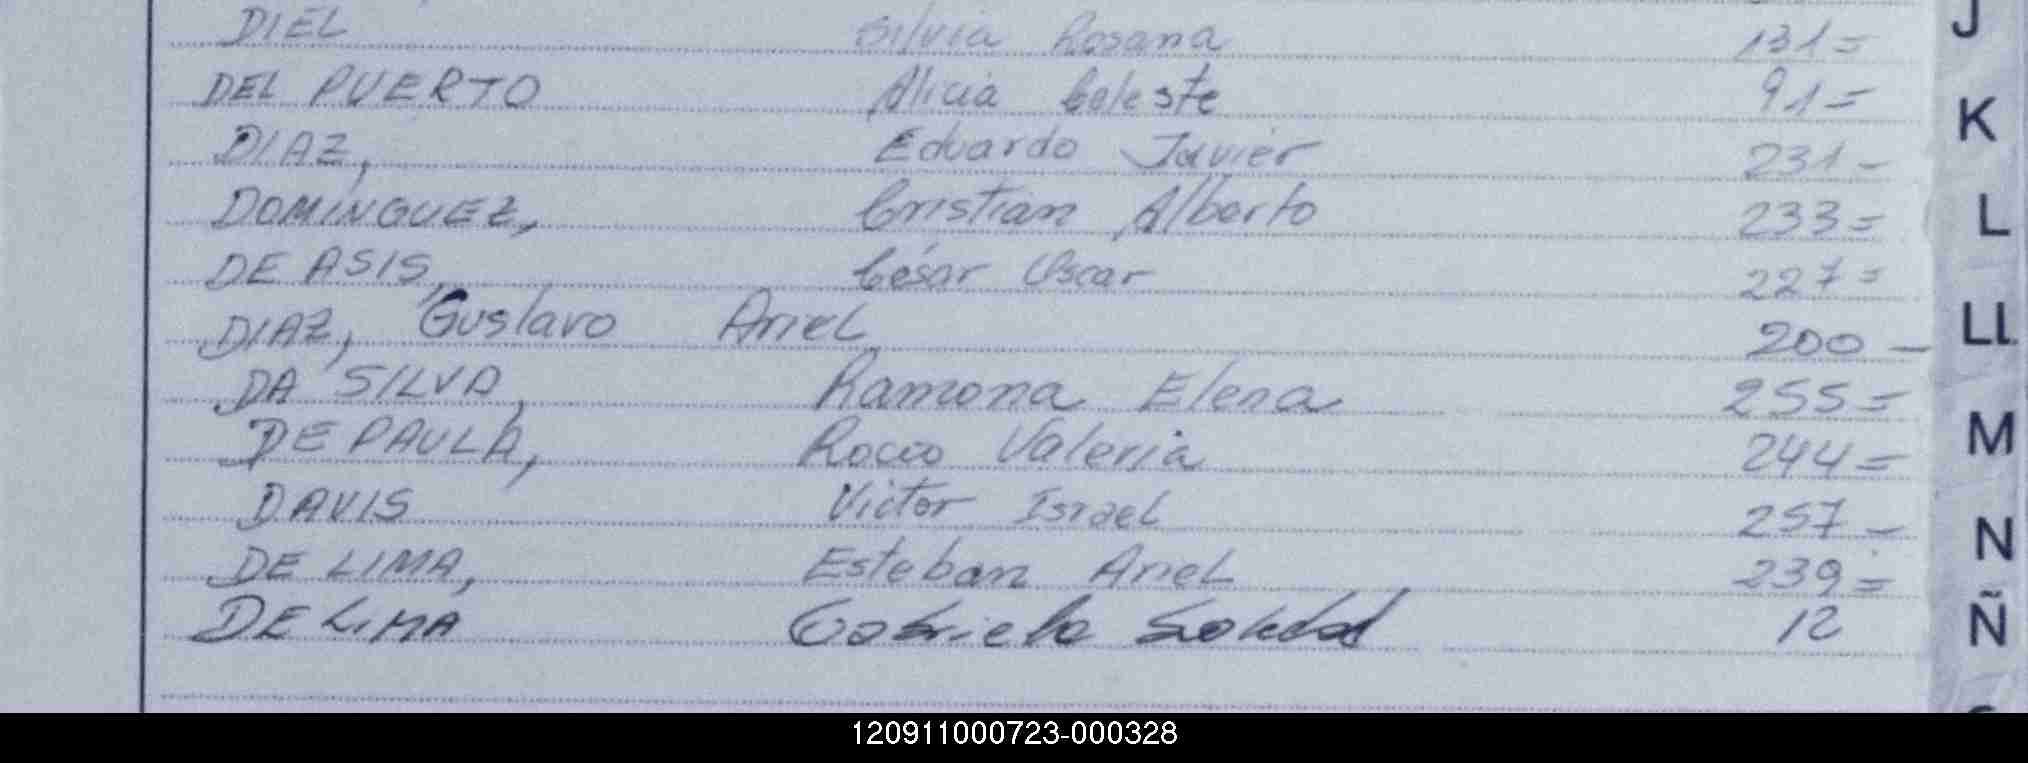 DIEL Silvia Rosana 131=
DEL PUERTO Alicia Celeste 91=
DIAZ, Eduardo Javier 231-
DOMINGUEZ, Cristian Alberto 233=
DE ASIS, César Oscar 227=
DIAZ, Gustavo Ariel 200-
DA SILVA, Ramona Elena 255=
DE PAULA, Rocio Valeria 244=
DAVIS Victor Israel 257-
DE LIMA, Esteban Ariel 239=
DE LIMA Gabriela Soledad 12
J
K
L
LL
M
N
Ñ
120911000723-000328